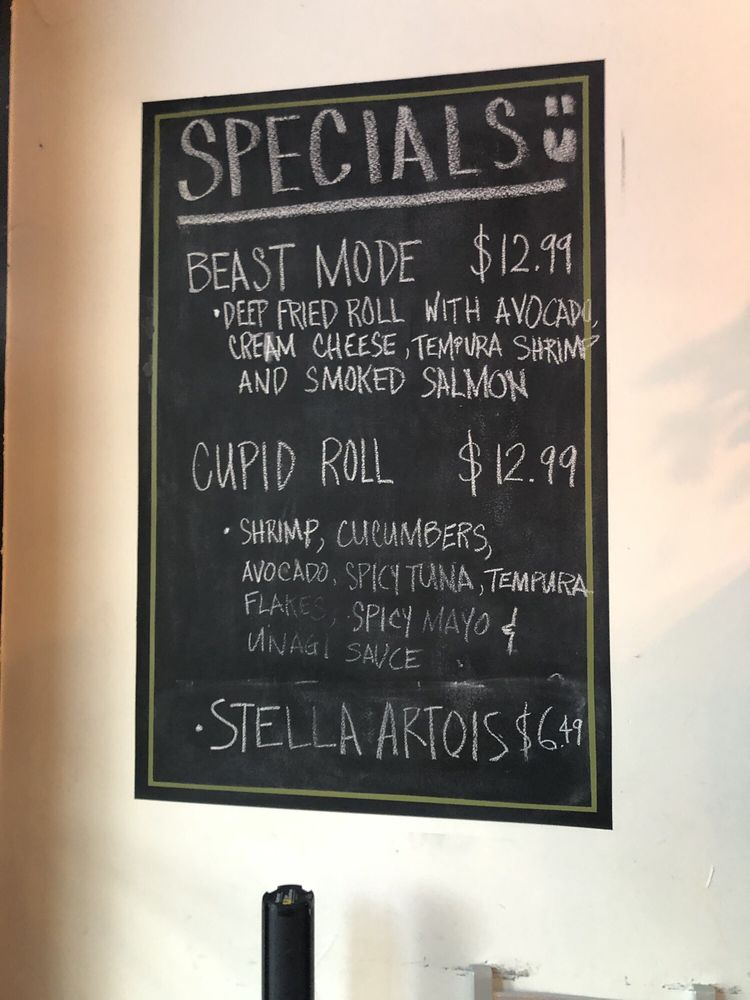 SPECIALS
BEAST MODE $12.99
• DEEP FRIED ROLL WITH AVOCADO,
CREAM CHEESE, TEMPURA SHRIMP
AND SMOKED SALMON
CUPID ROLL $12.99
• SHRIMP, CUCUMBERS,
AVOCADO, SPICY TUNA, TEMPURA
FLAKES, SPICY MAYO &
UNAGI SAUCE
• STELLA ARTOIS $6.49